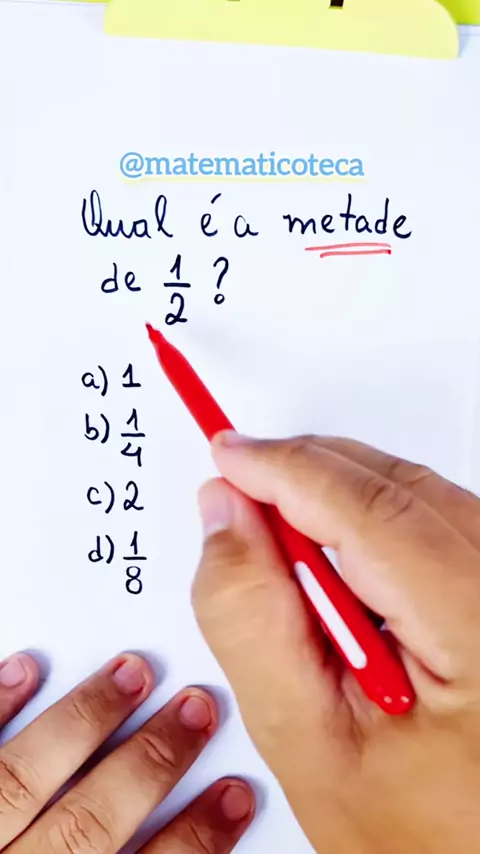 @matematicoteca
Qual é a metade
de 1/2 ?
a) 1
b) 1/4
c) 2
d) 1/8